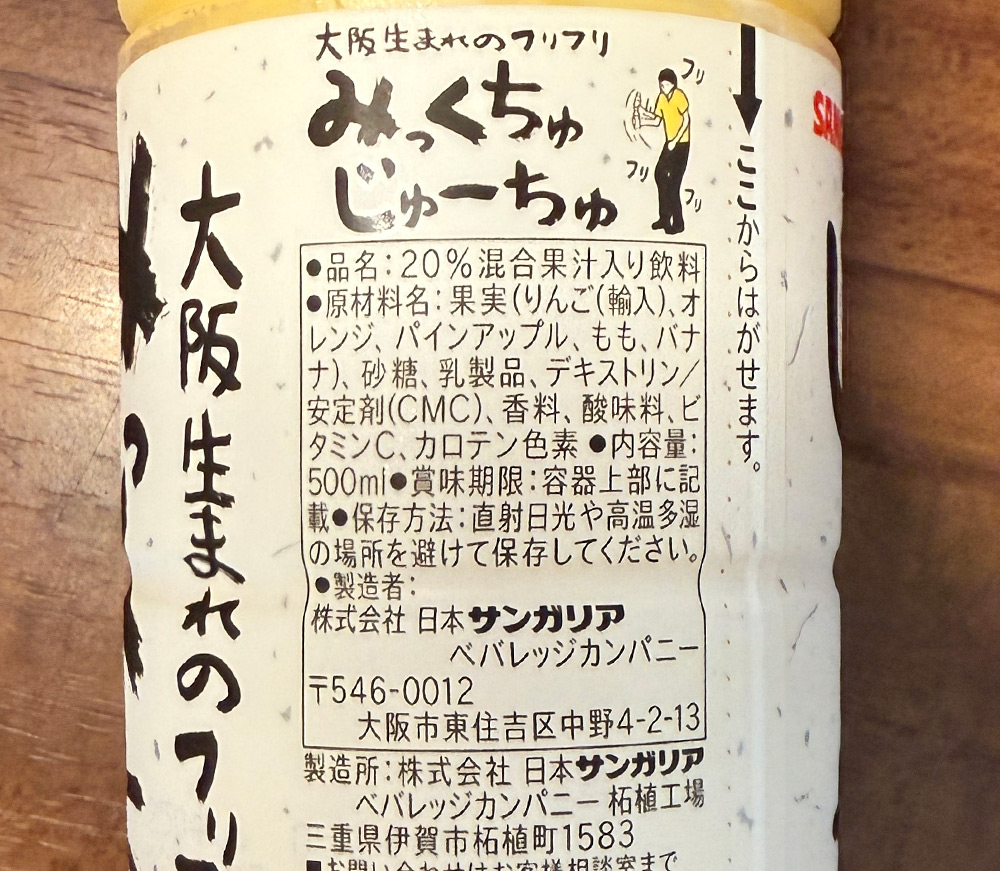 大阪生まれのフリフリ
みっくちゅ
じゅーちゅ
フリ
フリ
フリ
●品名：20%混合果汁入り飲料
●原材料名：果実(りんご(輸入)、オ
レンジ、パインアップル、もも、バナ
ナ)、砂糖、乳製品、デキストリン/
安定剤(CMC)、香料、酸味料、ビ
タミンC、カロテン色素 ●内容量：
500ml●賞味期限：容器上部に記
載●保存方法：直射日光や高温多湿
の場所を避けて保存してください。
●製造者：
株式会社 日本サンガリア
ベバレッジカンパニー
〒546-0012
大阪市東住吉区中野4-2-13
製造所：株式会社 日本サンガリア
ベバレッジカンパニー 柘植工場
三重県伊賀市柘植町1583
■お問い合わせはお客様相談室まで
ここからはがせます。
大阪生まれのフリ